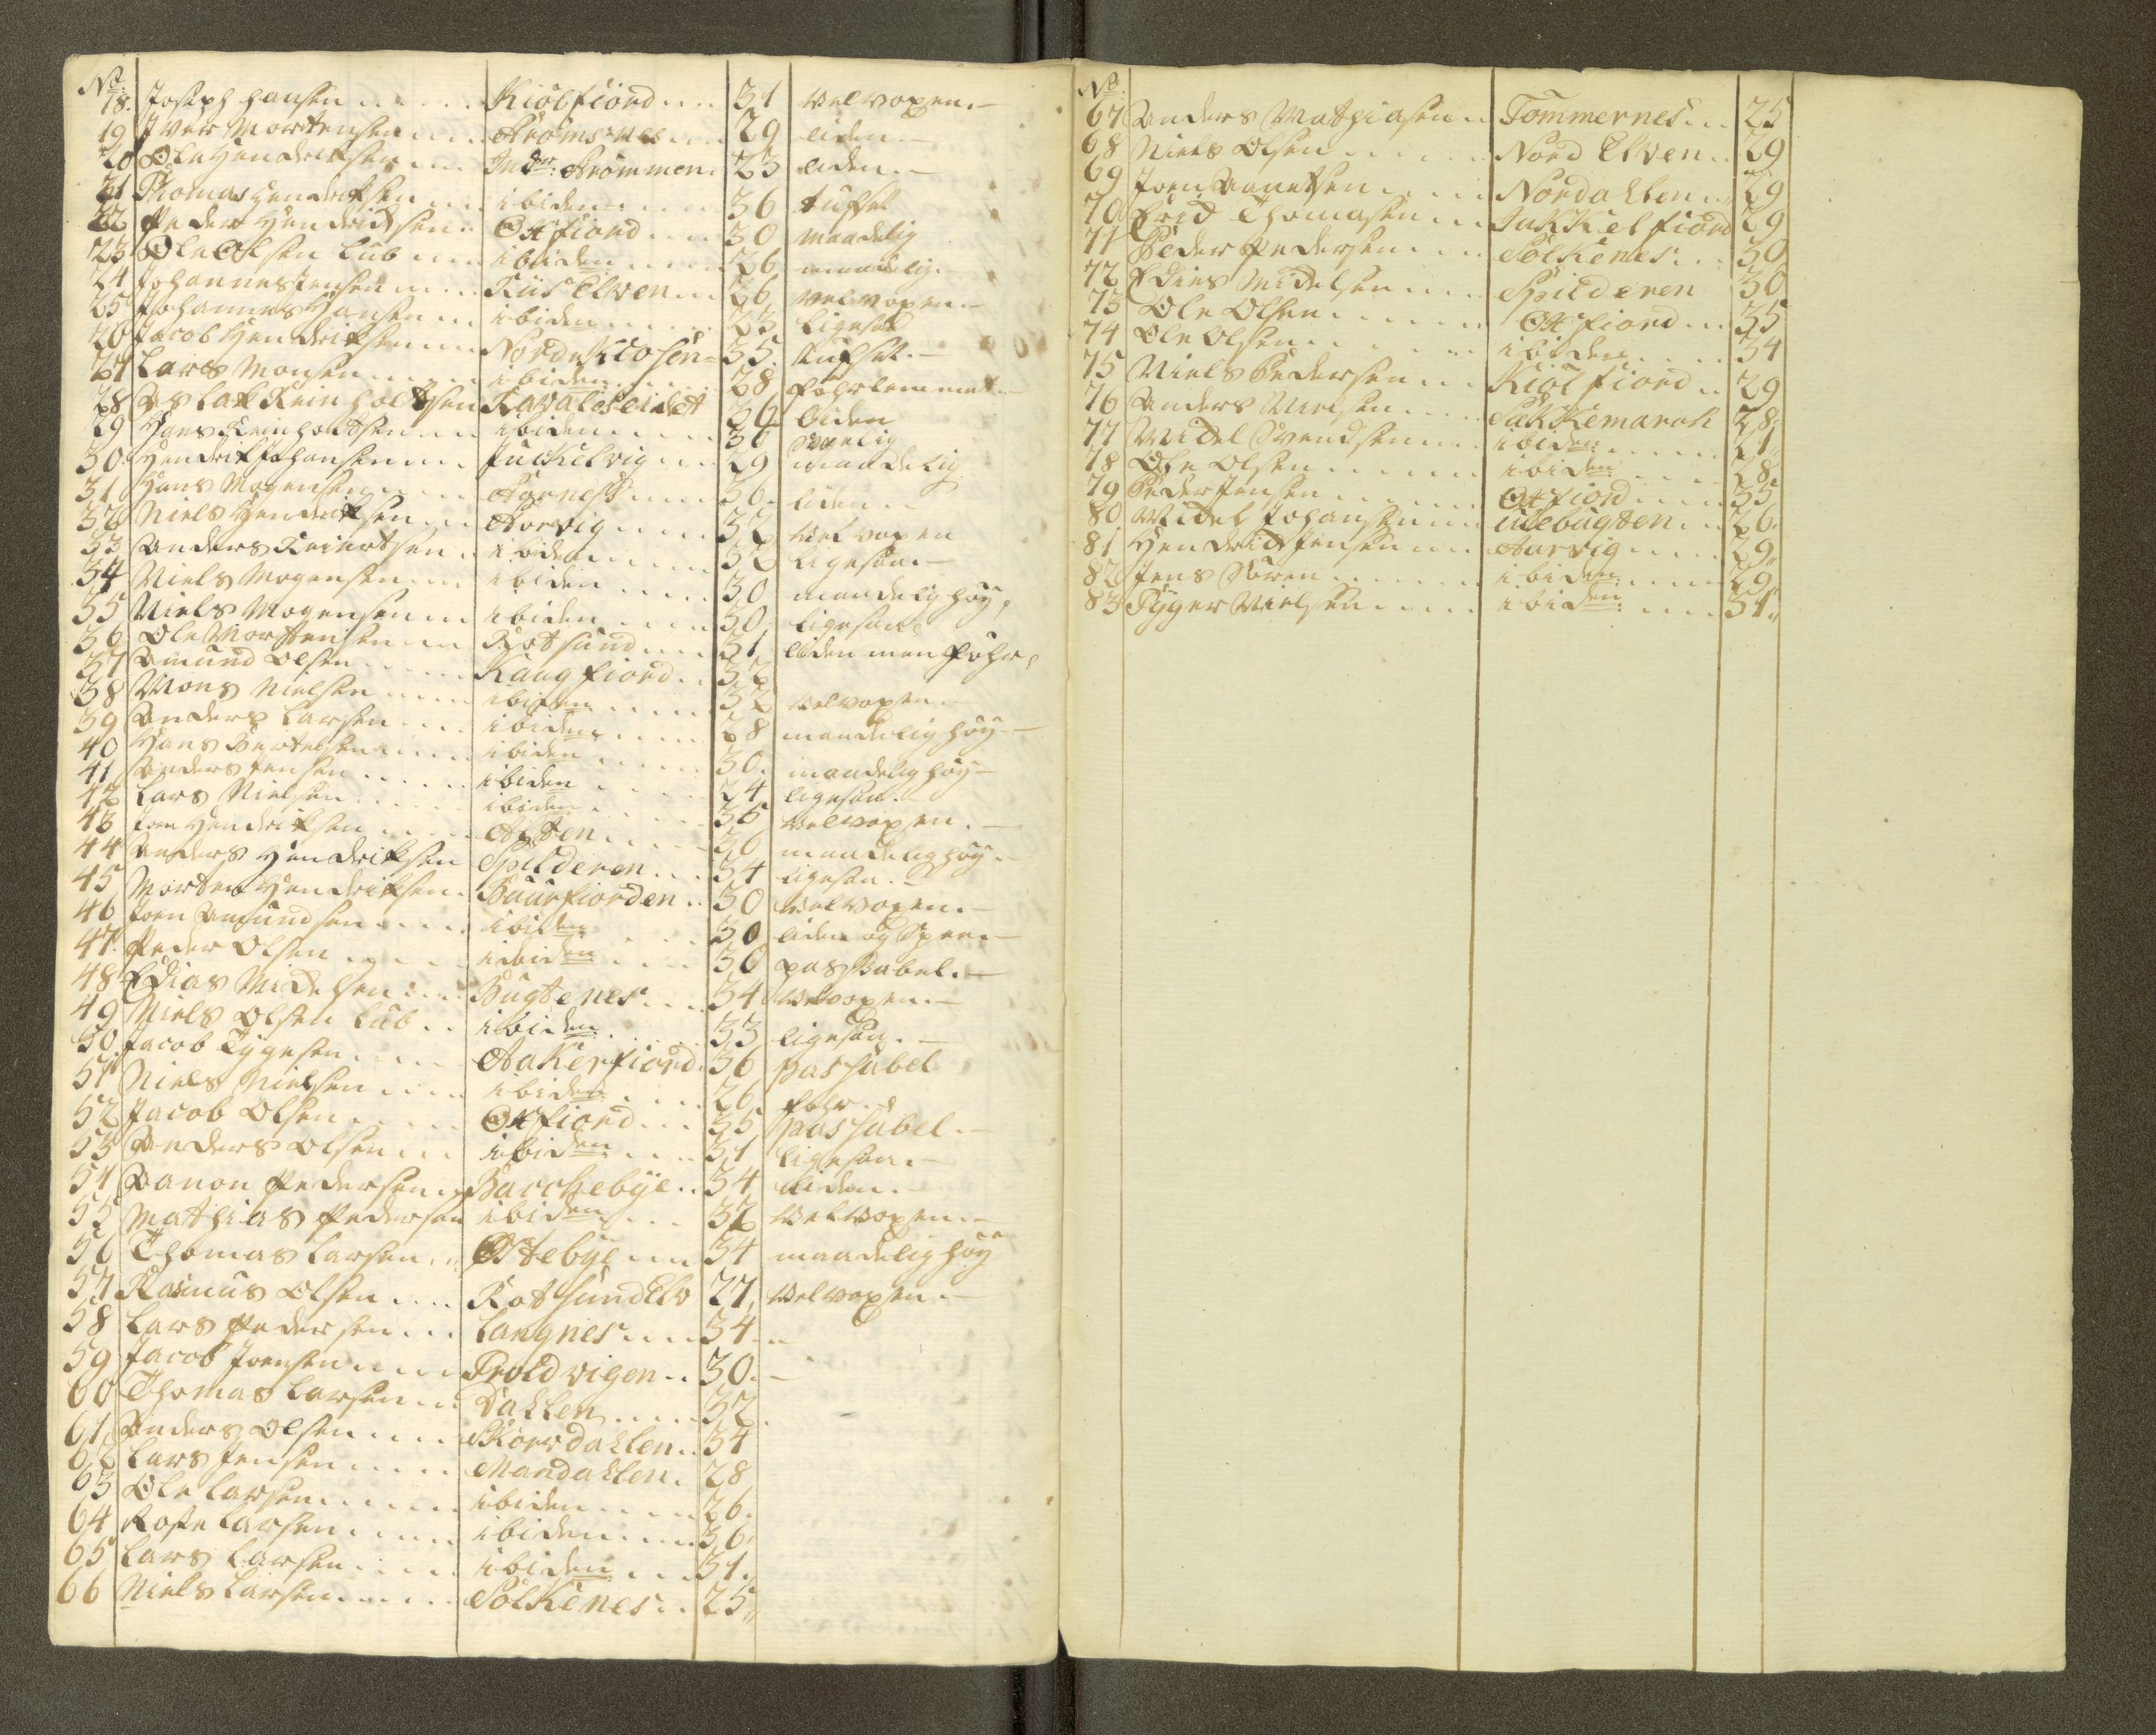 No.
18. Joseph Hansen .... Kiölfiord .... 31 velvoxen.-
19 Iver Mortensen .... Strömsnes ... 29 liden.-
20 Ole Hendriksen .... Indr: Strömmen. 23 liden.-
21 Thomas Hendriksen ... ibiden .... 36 tuffet
22 Peder Hendrichsen .. Oxfiord .... 30 maadelig
23 Ole Olsen Lub .... ibiden .... 26 maadelig.
24 Johannes Jensen .... Riis Elven ... 26 velvoxen.-
25 Johannes Hansen ... ibiden .... 23 ligesaa
26 Jacob Hendriksen .... Nordkiosen- 35. tuffet.-
27 Lars Monsen .... ibiden .... 28 föhrlemmet.-
28 Aslak Reinholtsen Ravaloseidet 26 liden
29 Hans Reinholdsen ... ibiden .... 30
30. Hendrik Johansen ... Juckelvig ... 29 maadelig
31 Hans Mogensen .... 36. liden.-
32 Niels Hendriksen ... Storvig .... 32 velvoxen
33 Anders Reiertsen .. ibiden .... 32 ligesaa.-
34 Niels Mogensen .... ibiden .... 30 maadelig höy,
35 Niels Mogensen .... ibiden .... 30 ligesaa
36 Ole Mortensen .... Rotsund .... 31 liden men föhr,
37 Amund Olsen .... Kaagfiord .. 32
38 Mons Nielsen .... ibiden .... 32 velvoxen.-
39 Anders Larsen .... ibiden .... 28 maadelig höy-
40 Hans Bertelsen .... ibiden .... 30. maadelig höy-
41 Anders Jensen .... ibiden .... 24 ligesaa.-
42 Lars Nielsen .... ibiden .... 35 velvoxen.-
43 Joen Hendriksen .... .... 30 maadelig höy.-
44 Anders Hendriksen Spilderen ... 34 ligesaa.-
45 Morten Hendriksen. Baurfiorden .. 30 velvoxen.-
46 Joen Amundsen .... ibiden .... 30 liden og
47. Peder Olsen .... ibiden .... 30 passabel.-
48 Edias Michelsen ... Bugtenes ... 34 velvoxen.-
49 Niels Olsen Lub .. ibiden .... 33 ligesaa.-
50. Jacob Tygesen .... Aakerfiord. 36 passabel
51 Niels Nielsen .... ibiden .... 26 föhr.-
52 Jacob Olsen .... Oxfiord ... 35 passabel.-
53 Anders Olsen .... ibiden .... 31 ligesaa.-
54 Banon Pedersen ... Bacchebye .. 34 liden.-
55 Mathias Pedersen ibiden .... 32 velvoxen.-
56 Thomas Larsen ... Ostebye .... 34 maadelig höy
57 Rasmus Olsen .... RotsundElv 27, velvoxen.-
58 Lars Pedersen ... Langnes .... 34..
59 Jacob Joensen .... Troldvigen .. 30.-
60 Thomas Larsen ... Dahlen .... 32.
61 Anders Olsen .... Skorrdahlen .. 34
62 Lars Jensen .... Mandahlen. 28
63 Ole Larsen .... ibiden .... 26.
64 Larsen .... ibiden .... 36.
65 Lars Larsen .... ibiden .... 31.
66 Niels Larsen .... Sölkenes .. 25,,
No.
67 Anders Mathiasen .. Tommernes ... 25
68 Niels Olsen .... Nord Elven .. 29
69 Joen .... Nordahlen .. 29
70 Erich Thomasen ... Jukkelfiord 29
71 Peder Pedersen .... Sölkenes ... 30
72 Edies Michelsen .... Spilderen 30
73 Ole Olsen .... Oxfiord ... 35
74 Ole Olsen .... ibiden .... 34
75 Niels Pedersen ... Kiölfiord .. 29
76 Anders Nielsen .... Sakkemarok 28.
77 Michel Svendsen ... ibiden .... 21
78 Ole Olsen .... ibiden .... 28.
79 Peder Jensen .... Oxfiord .... 35
80 Michel Johansen .... Ulebugten .. 26.
81 Hendrich Jensen .... Aarvig .... 29.
82 Jens Sören .... ibiden .... 29.
83 Tyger Nielsen .... ibiden .... 31.